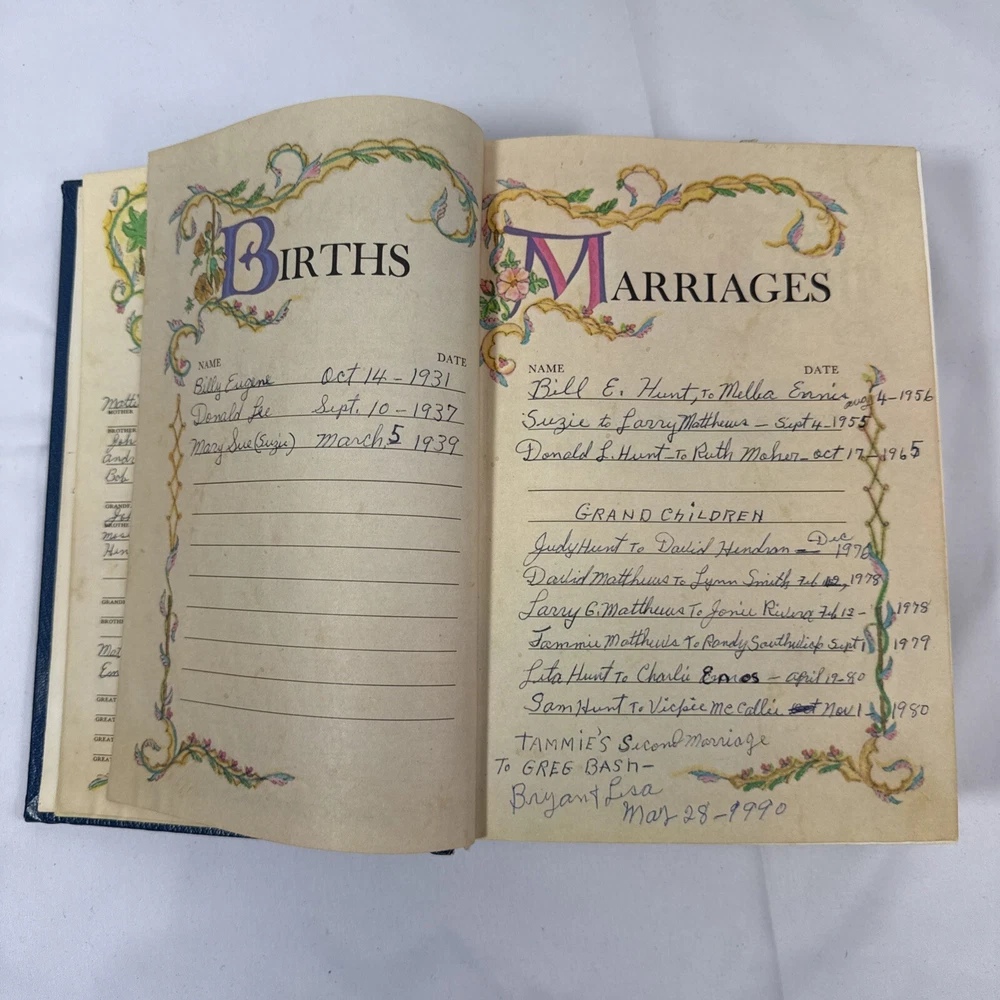 BIRTHS
NAME DATE
Billy Eugene Oct 14 - 1931
Donald Lee Sept. 10 - 1937
Mary Sue (Suzie) March 5 1939
MARRIAGES
NAME DATE
Bill E. Hunt, To Melba Ennis aug 4 - 1956
Suzie to Larry Matthews - Sept 4 - 1955
Donald L. Hunt - To Ruth Maher - oct 17 - 1965
GRAND CHILDREN
Judy Hunt To David Hendran - Dec 1976
David Matthews To Lynn Smith Feb 1978
Larry G. Matthews To Jonie Rivera Feb 12 - 1978
Tammie Matthews To Randy Southwick Sept 1 1979
Lita Hunt To Charlie Ennos - april 19-80
Sam Hunt To Vickie McCallie Nov 1 1980
TAMMIE'S Second Marriage
To GREG BASH-
Bryan & Lisa
May 28-1990
Matti
MOTHER
BROTHER
John
Andr
Bob
GRANDF
BROTHE
Hen
GRAND
BROTH
GREAT
GREAT
GREAT
GREA